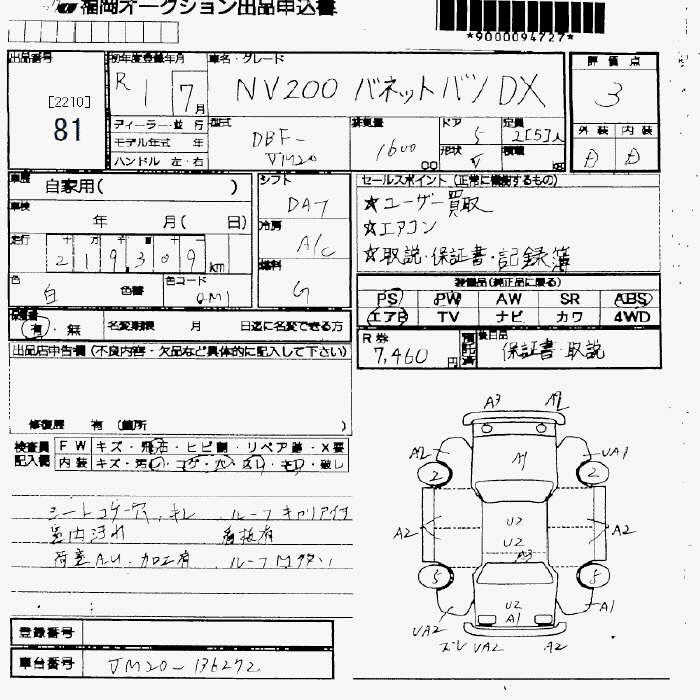 福岡オークション出品申込書
*9000094727*
出品番号
[2210]
81
初年度登録年月
R 1 7月
車名・グレード
NV200 バネットバン DX
評価点
3
ディーラー・並行
モデル年式 年
ハンドル 左・右
型式
DBF-
VM20
排気量
1600 CC
ドア
5
形状
V
定員
2[5]人
積載
外装 内装
D D
車歴
自家用( )
車検
年 月( 日)
走行
219,309 km
色
白 色替
色コード
QM1
シフト
DA7
冷房
A/C
燃料
G
セールスポイント (正常に機能するもの)
☆ユーザー買取
☆エアコン
☆取説・保証書・記録簿
装備品(純正品に限る)
PS PW AW SR ABS
エアB TV ナビ カワ 4WD
保証書
有・無
名変期限 月 日迄に名変できる方
R券
7,460円
預託済
後日品
保証書・取説
出品店申告欄 (不良内容・欠品など具体的に記入して下さい)
修復歴 有 (箇所 )
検査員記入欄
FW キズ・飛石・ヒビ割・リペア跡・X要
内装 キズ・汚レ・コゲ・穴・スレ・キレ・破レ
シートコゲ穴、キレ ルーフキャリア付
室内汚れ 看板有
荷室AU・加工有 ルーフMダメ
登録番号
車台番号
VM20-136272
A3 A2
A2 A1 UA1
2 2
A2 U2 A2
U2
A3
5 5
U2
A1
UA2 A1
ズレ UA2 A2